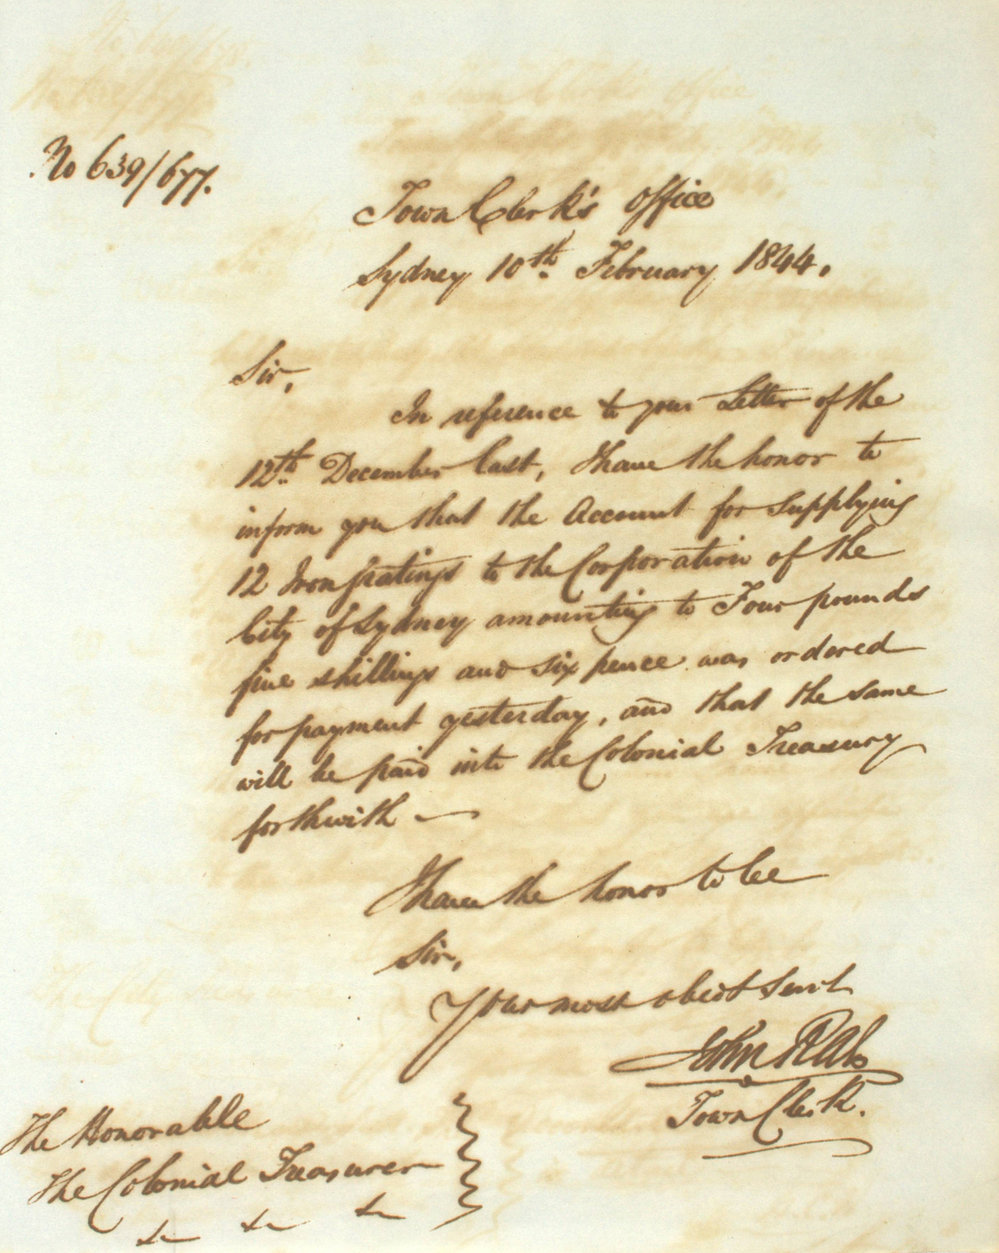 No 639/677.
Town Clerk's Office
Sydney 10th February 1844.
Sir,
In reference to your Letter of the
12th December last, I have the honor to
inform you that the Account for supplying
12 Iron gratings to the Corporation of the
City of Sydney amounting to Four pounds
five shillings and six pence was ordered
for payment yesterday, and that the same
will be paid into the Colonial Treasury
forthwith —
I have the honor to be
Sir,
Your most obedt Servt
John
Town Clerk.
The Honorable
The Colonial Treasurer